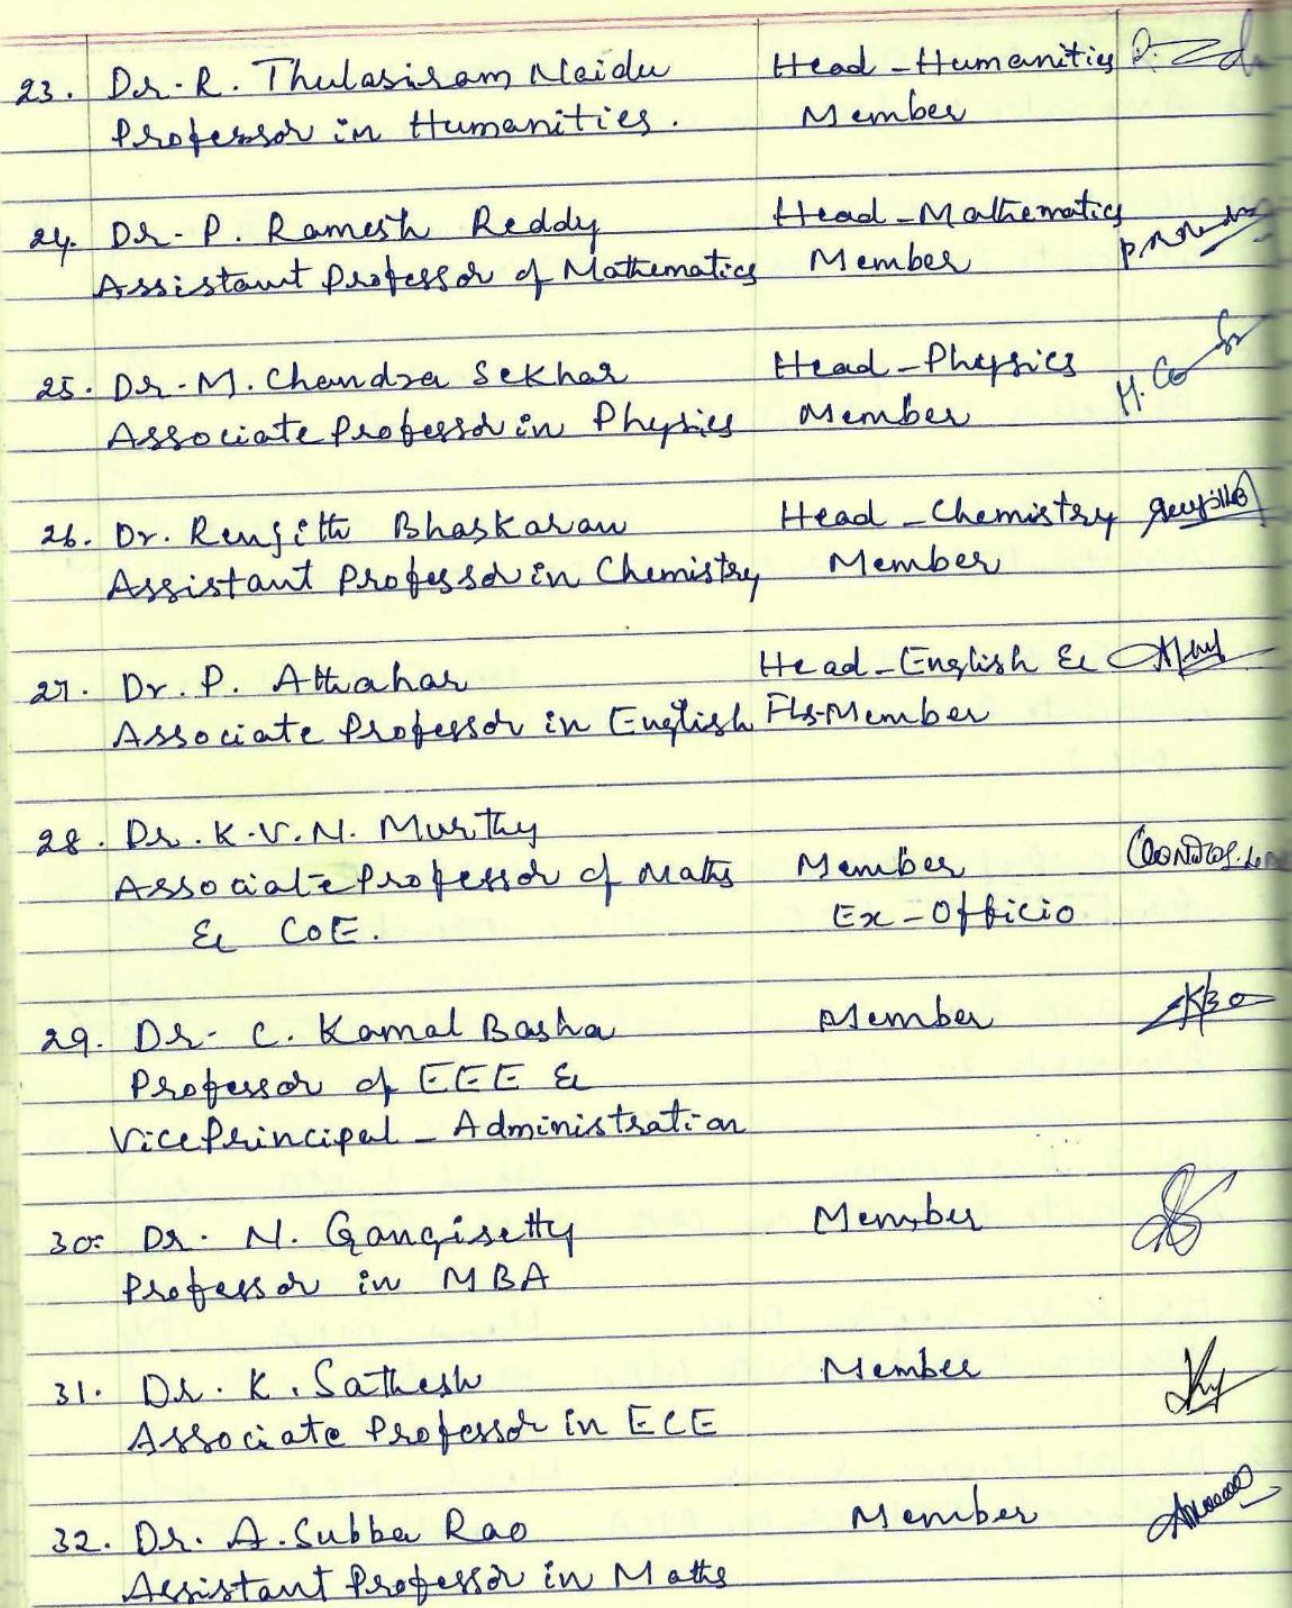 23. Dr. R. Thulasiram Naidu Head - Humanities
Professor in Humanities. Member
24. Dr. P. Ramesh Reddy Head - Mathematics
Assistant Professor of Mathematics Member
25. Dr. M. Chandra Sekhar Head - Physics
Associate Professor in Physics Member
26. Dr. Renjith Bhaskaran Head - Chemistry
Assistant Professor in Chemistry Member
27. Dr. P. Attahar Head - English &
Associate Professor in English FLs-Member
28. Dr. K.V.N. Murthy
Associate Professor of Maths Member
& CoE. Ex-Officio
29. Dr. C. Kamal Basha Member
Professor of EEE &
Vice Principal - Administration
30. Dr. N. Gangisetty Member
Professor in MBA
31. Dr. K. Sathesh Member
Associate Professor in ECE
32. Dr. A. Subba Rao Member
Assistant Professor in Maths